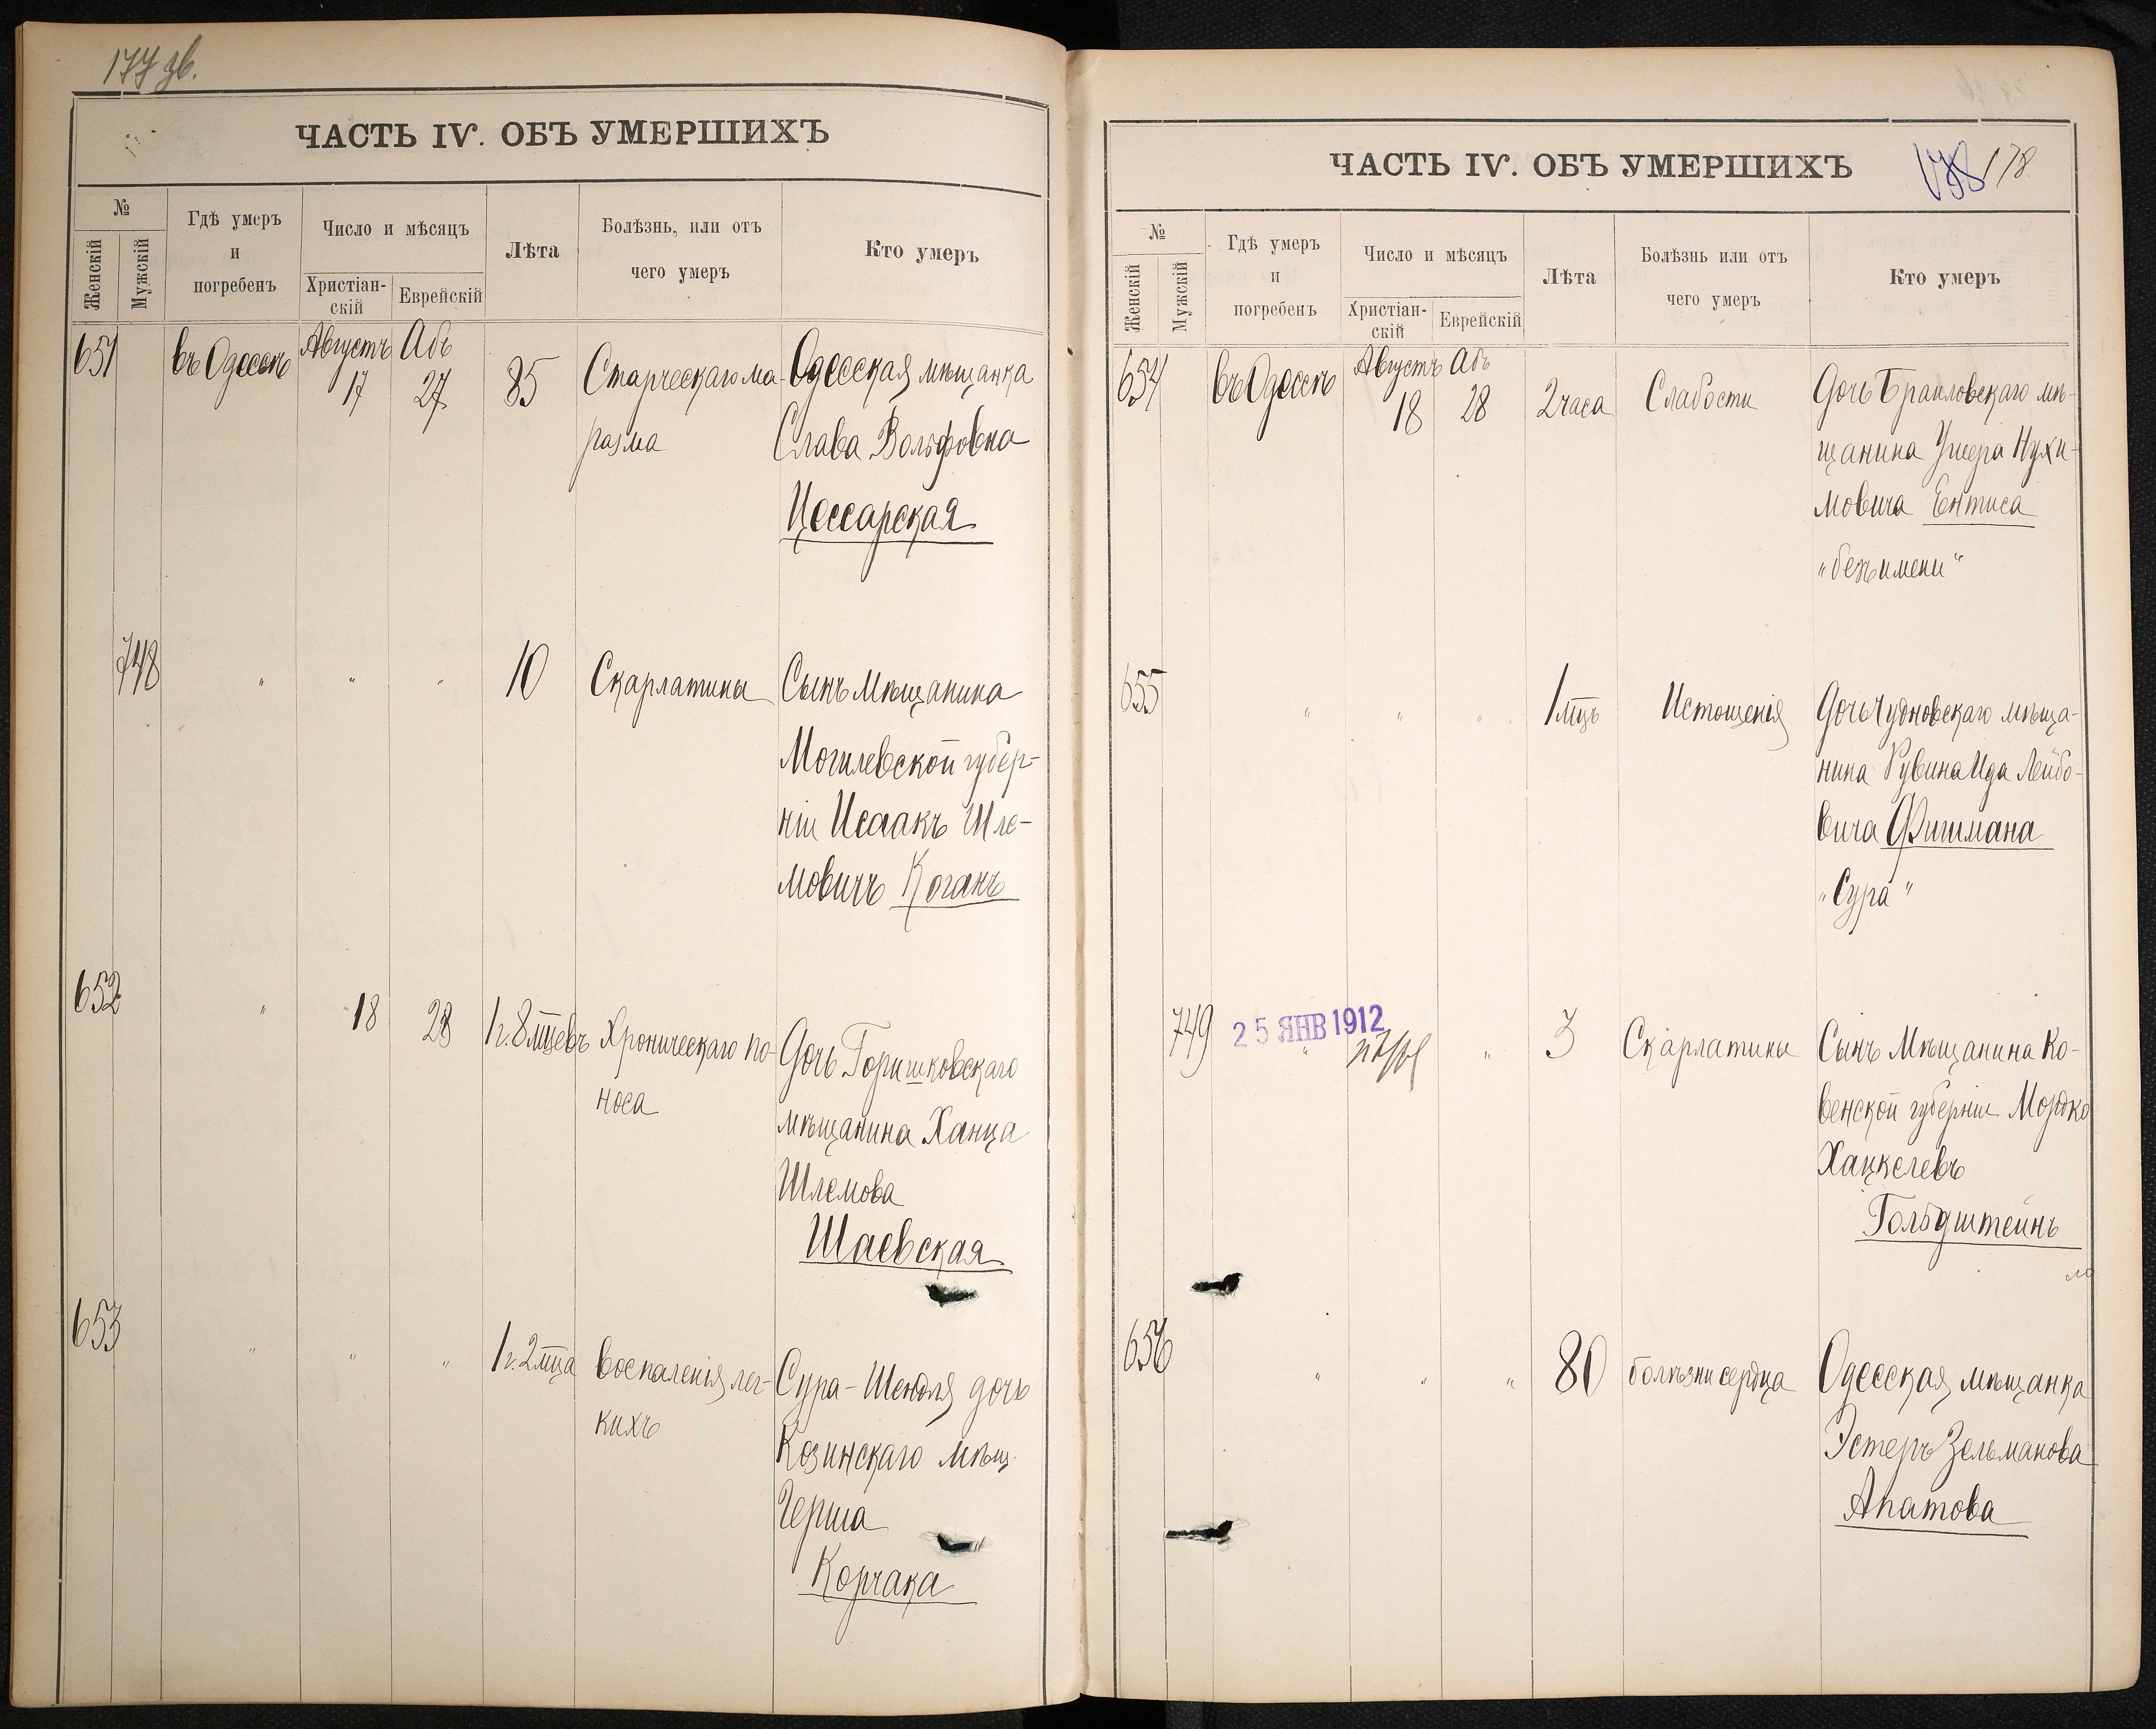 177 зв.
ЧАСТЬ IV. ОБЪ УМЕРШИХЪ
№
Женскій
Мужскій
Гдѣ умеръ
и
погребенъ
Число и мѣсяцъ
Христіан-
скій
Еврейскій
Лѣта
Болѣзнь, или отъ
чего умеръ
Кто умеръ
651
въ Одессѣ
Августъ
17
Абъ
27
85
Старческаго ма-
разма
Одесская мѣщанка
Слава Вольфовна
Цессарская
748
" " "
10
Скарлатины
Сынъ Мѣщанина
Могилевской губер-
ніи Исаакъ Шле-
мовичъ Коганъ
652
"
18
28
1 г. 8 мцевъ
Хроническаго по-
носа
Дочь Горишковскаго
мѣщанина Ханца
Шлемова
Шаевская
653
" " "
1 г. 2 мца
Воспаленія лег-
кихъ
Сура-Шендля дочь
Козинскаго мѣщ.
Герша
Корчака
178
ЧАСТЬ IV. ОБЪ УМЕРШИХЪ
№
Женскій
Мужскій
Гдѣ умеръ
и
погребенъ
Число и мѣсяцъ
Христіан-
скій
Еврейскій
Лѣта
Болѣзнь или отъ
чего умеръ
Кто умеръ
654
Въ Одессѣ
Августъ
18
Абъ
28
2 часа
Слабости
Дочь Браиловскаго мѣ-
щанина Ушера Нухи-
мовича Ентиса
"безъ имени"
655
" " "
1 мцъ
Истощенія
Дочь Чудновскаго мѣща-
нина Рувина Ида Лейбо-
вича Фишмана
"Сура"
749
25 ЯНВ 1912
" "
3
Скарлатины
Сынъ Мѣщанина Ко-
венской губерніи Мордко
Хацкелевъ
Гольдштейнъ
656
" " "
80
болѣзни сердца
Одесская мѣщанка
Эстеръ Зельманова
Апатова